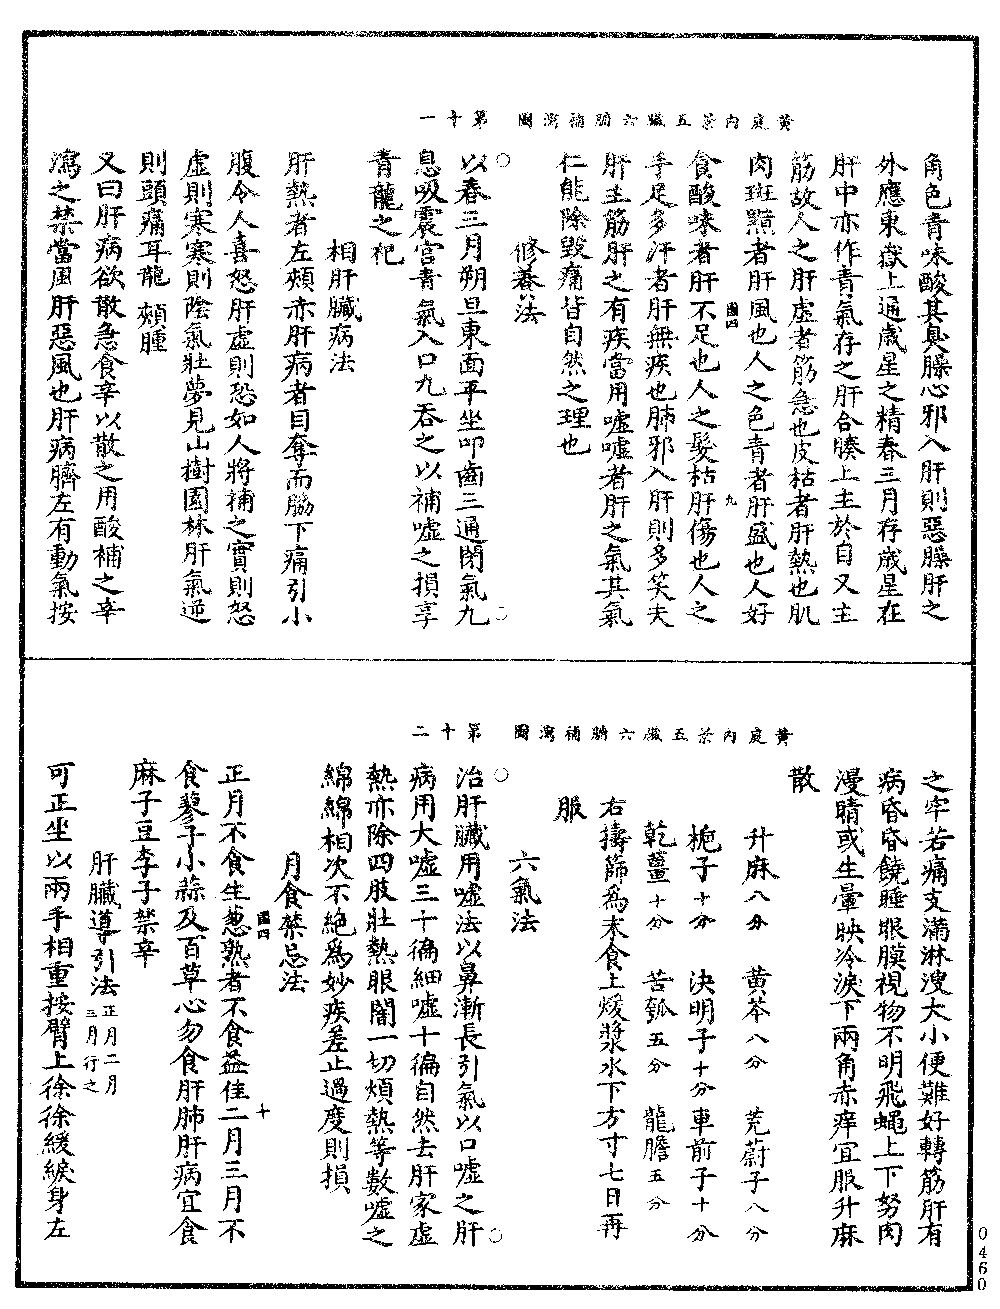 黃庭內景五臟六腑補瀉圖 第十一
角色青味酸其臭臊心邪入肝則惡臊肝之
外應東嶽上通歲星之精春三月存歲星在
肝中亦作青氣存之肝合膝上主於目又主
筋故人之肝虛者筋急也皮枯者肝熱也肌
肉斑黶者肝風也人之色青者肝盛也人好
食酸味者肝不足也人之髮枯肝傷也人之
手足多汗者肝無疾也肺邪入肝則多笑夫
肝主筋肝之有疾當用噓噓者肝之氣其氣
仁能除毀痛皆自然之理也
修養法
以春三月朔旦東面平坐叩齒三通閉氣九
息吸震宮青氣入口九吞之以補噓之損享
青龍之祀
相肝臟病法
肝熱者左頰赤肝病者目奪而脇下痛引小
腹令人喜怒肝虛則恐如人將補之實則怒
虛則寒寒則陰氣壯夢見山樹園林肝氣逆
則頭痛耳聾頰腫
又曰肝病欲散急食辛以散之用酸補之辛
瀉之禁當風肝惡風也肝病臍左有動氣按
圖四
九
黃庭內景五臟六腑補瀉圖 第十二
之牢若痛支滿淋溲大小便難好轉筋肝有
病昏昏饒睡眼膜視物不明飛蠅上下努肉
漫睛或生暈映冷淚下兩角赤痒宜服升麻
散
升麻八分 黃芩八分 茺蔚子八分
梔子十分 決明子十分 車前子十分
乾薑十分 苦瓠五分 龍膽五分
右擣篩為末食上煖漿水下方寸七日再
服
六氣法
治肝臟用噓法以鼻漸長引氣以口噓之肝
病用大噓三十徧細噓十徧自然去肝家虛
熱亦除四肢壯熱眼闇一切煩熱等數噓之
綿綿相次不絕為妙疾差止過度則損
月食禁忌法
正月不食生葱熟者不食益佳二月三月不
食蓼子小蒜及百草心勿食肝肺肝病宜食
麻子豆李子禁辛
肝臟導引法正月二月三月行之
可正坐以兩手相重按臂上徐徐緩綟身左
圖四
十
0460